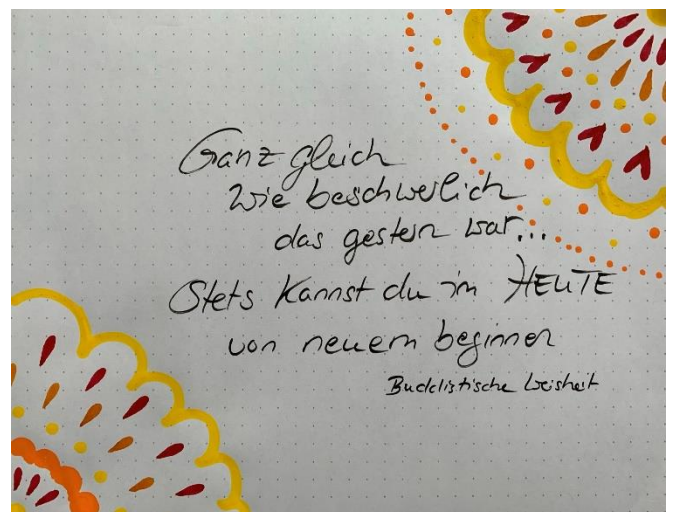 Ganz gleich
wie beschwerlich
das gestern war...
Stets kannst du im HEUTE
von neuem beginnen
Buddistische Weisheit